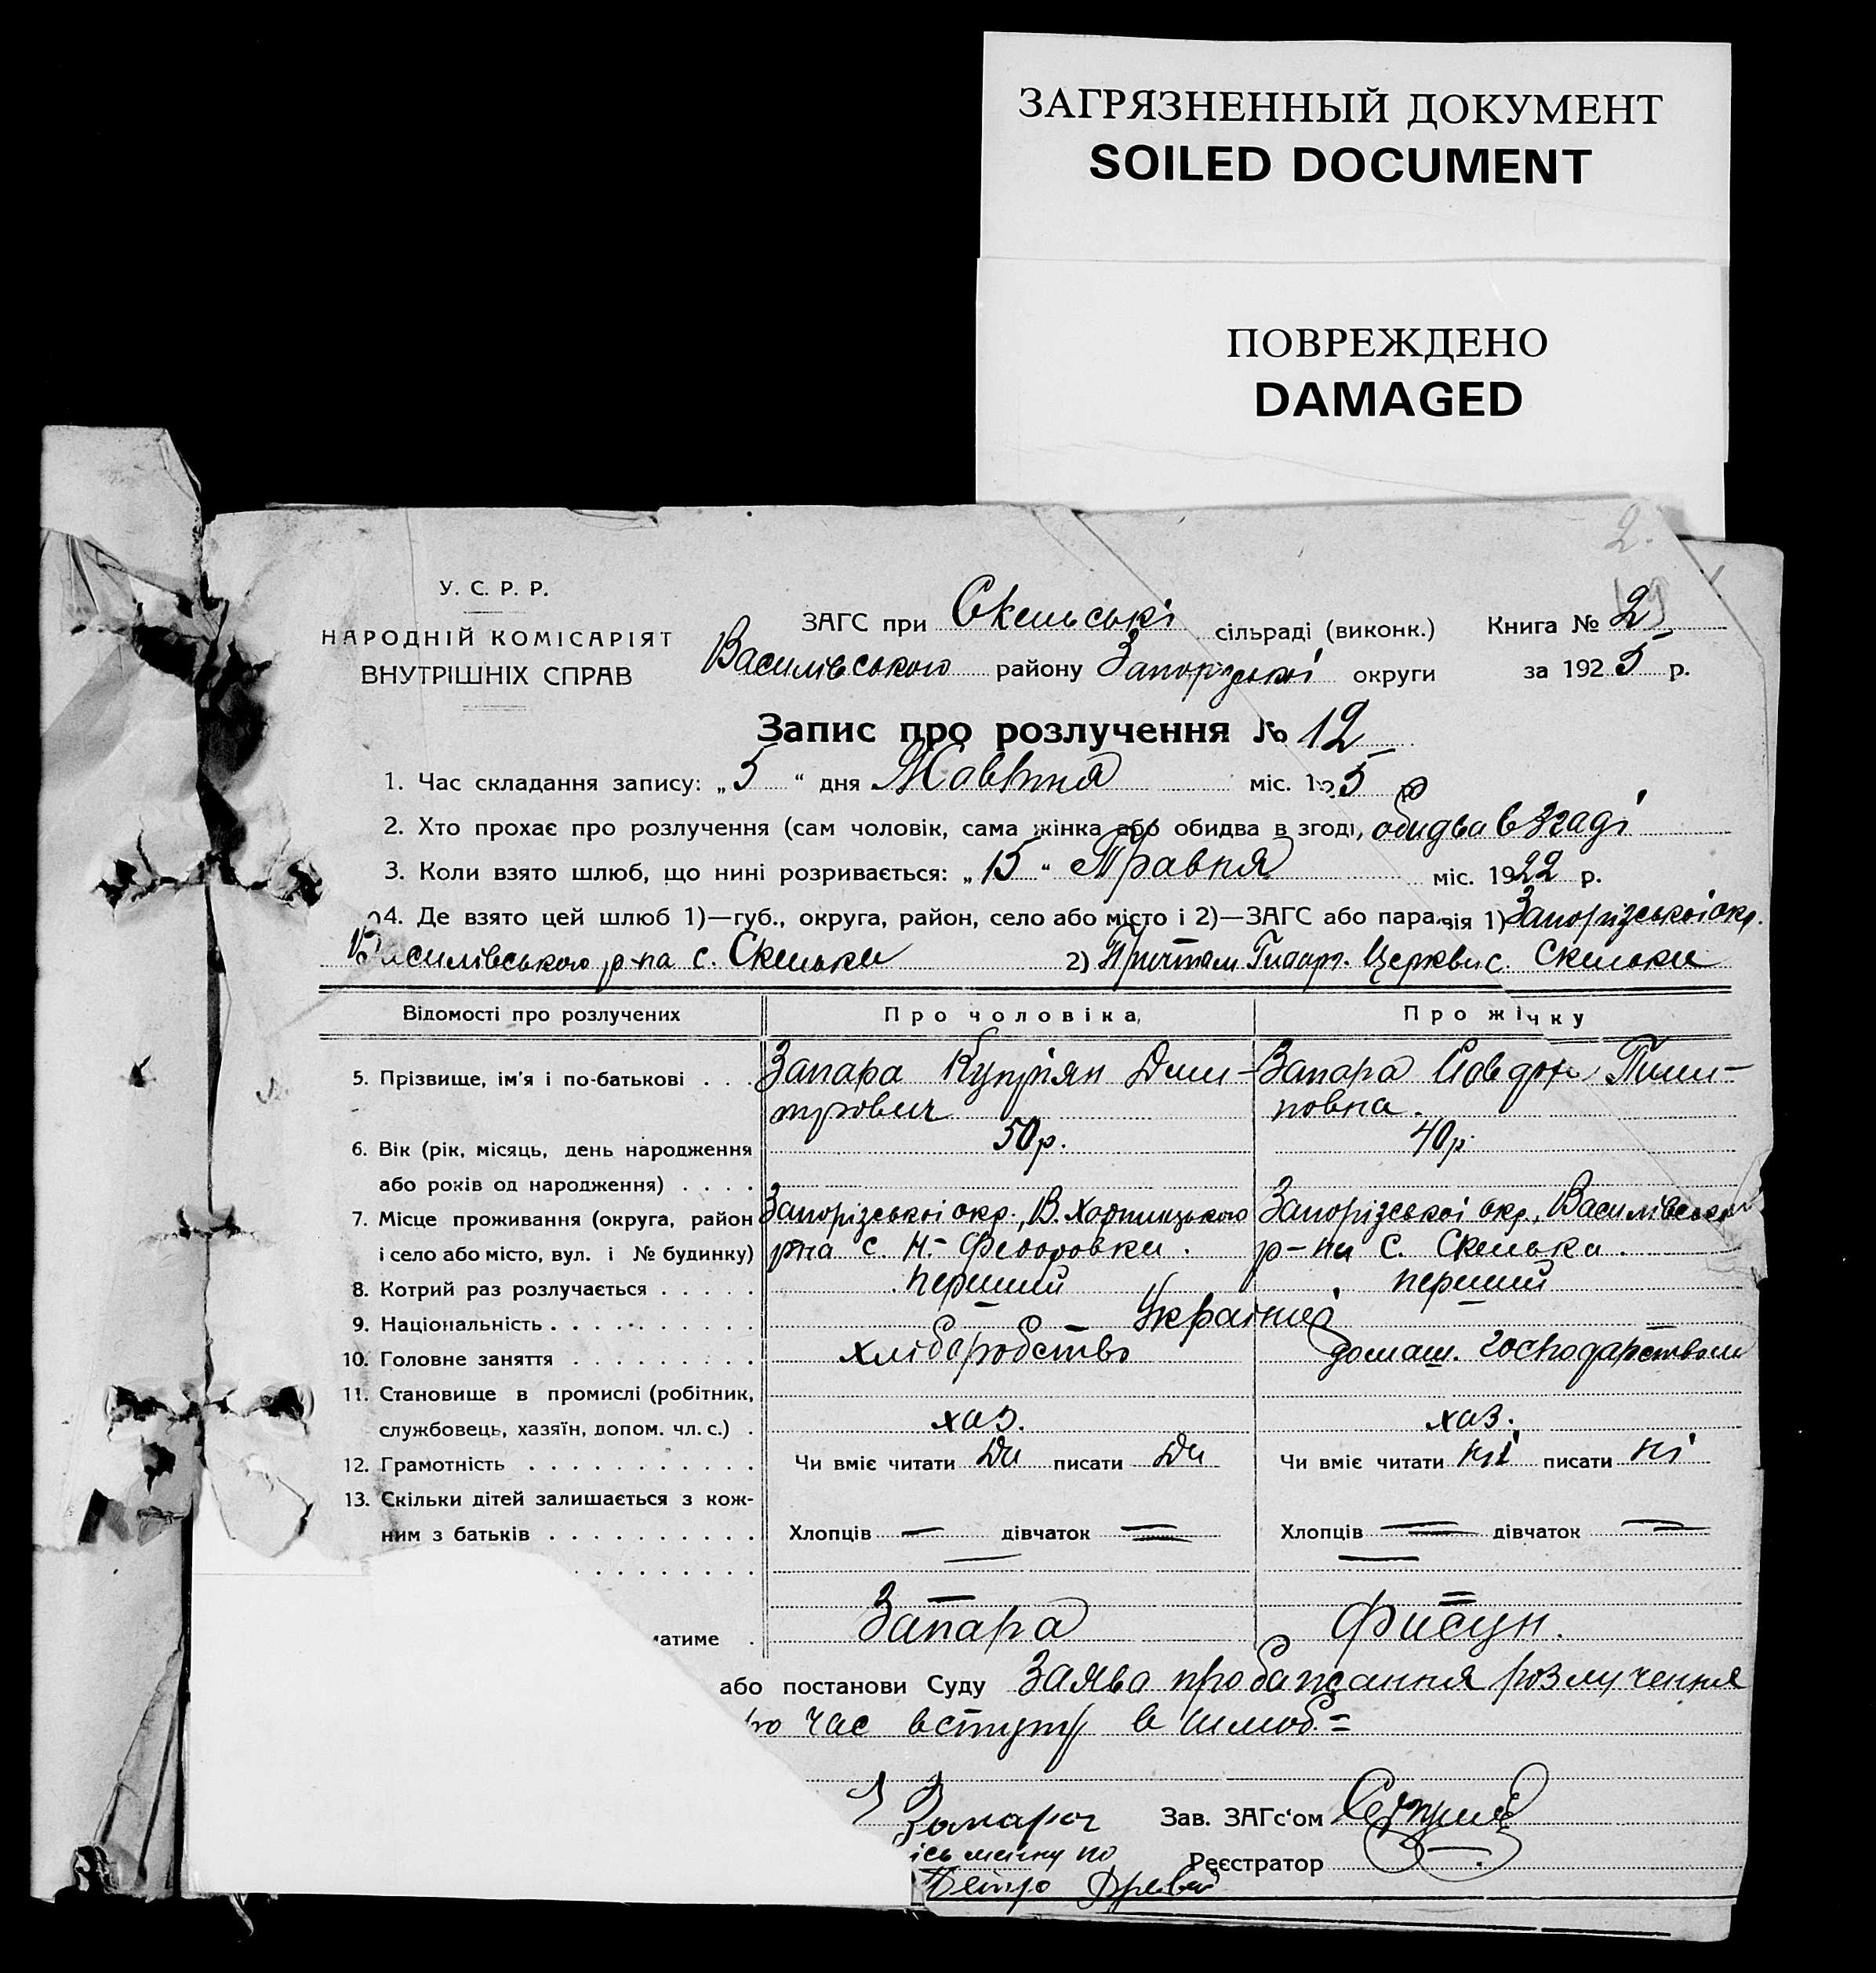 ЗАГРЯЗНЕННЫЙ ДОКУМЕНТ
SOILED DOCUMENT
ПОВРЕЖДЕНО
DAMAGED
2.
У. С. Р. Р.
НАРОДНІЙ КОМІСАРІЯТ
ВНУТРІШНІХ СПРАВ
ЗАГС при Скельські сільраді (виконк.) Книга № 2
Василівського району Запорізської округи за 1925 р.
Запис про розлучення № 12
1. Час складання запису: „5“ дня Жовтня міс. 19 5 р
2. Хто прохає про розлучення (сам чоловік, сама жінка або обидва в згоді, обидва в згоді
3. Коли взято шлюб, що нині розривається: „15“ Травня міс. 1922 р.
4. Де взято цей шлюб 1)—губ., округа, район, село або місто і 2)—ЗАГС або парахвія 1) Запорізської окр.
Василівського р-на с. Скельки 2) Причтом Церкви с. Скельки
Відомості про розлучених Про чоловіка, Про жінку
5. Прізвище, ім'я і по-батькові . . . Запара Купріян Дми- Запара Пили-
трович повна.
6. Вік (рік, місяць, день народження 50р. 40р.
або років од народження) . . . .
7. Місце проживання (округа, район Запорізської окр., В. Хортицького Запорізської окр., Василівсько
і село або місто, вул. і № будинку) р-на с. Н.-Федоровки. р-на с. Скелька.
8. Котрий раз розлучається . . . . . перший перший
9. Національність . . . . . . . . . . Українці
10. Головне заняття . . . . . . . . . хліборобство домаш. господарством
11. Становище в промислі (робітник,
службовець, хазяїн, допом. чл. с.) . хаз. хаз.
12. Грамотність . . . . . . . . . . . Чи вміє читати Да писати Да Чи вміє читати ні писати ні
13. Скільки дітей залишається з кож-
ним з батьків . . . . . . . . . . Хлопців — дівчаток — Хлопців — дівчаток —
матиме . Запара Фисун.
або постанови Суду Заява про бажання розлучення
про час вступу в шлюб.=
Запара Зав. ЗАГс'ом
Реєстратор
Петро